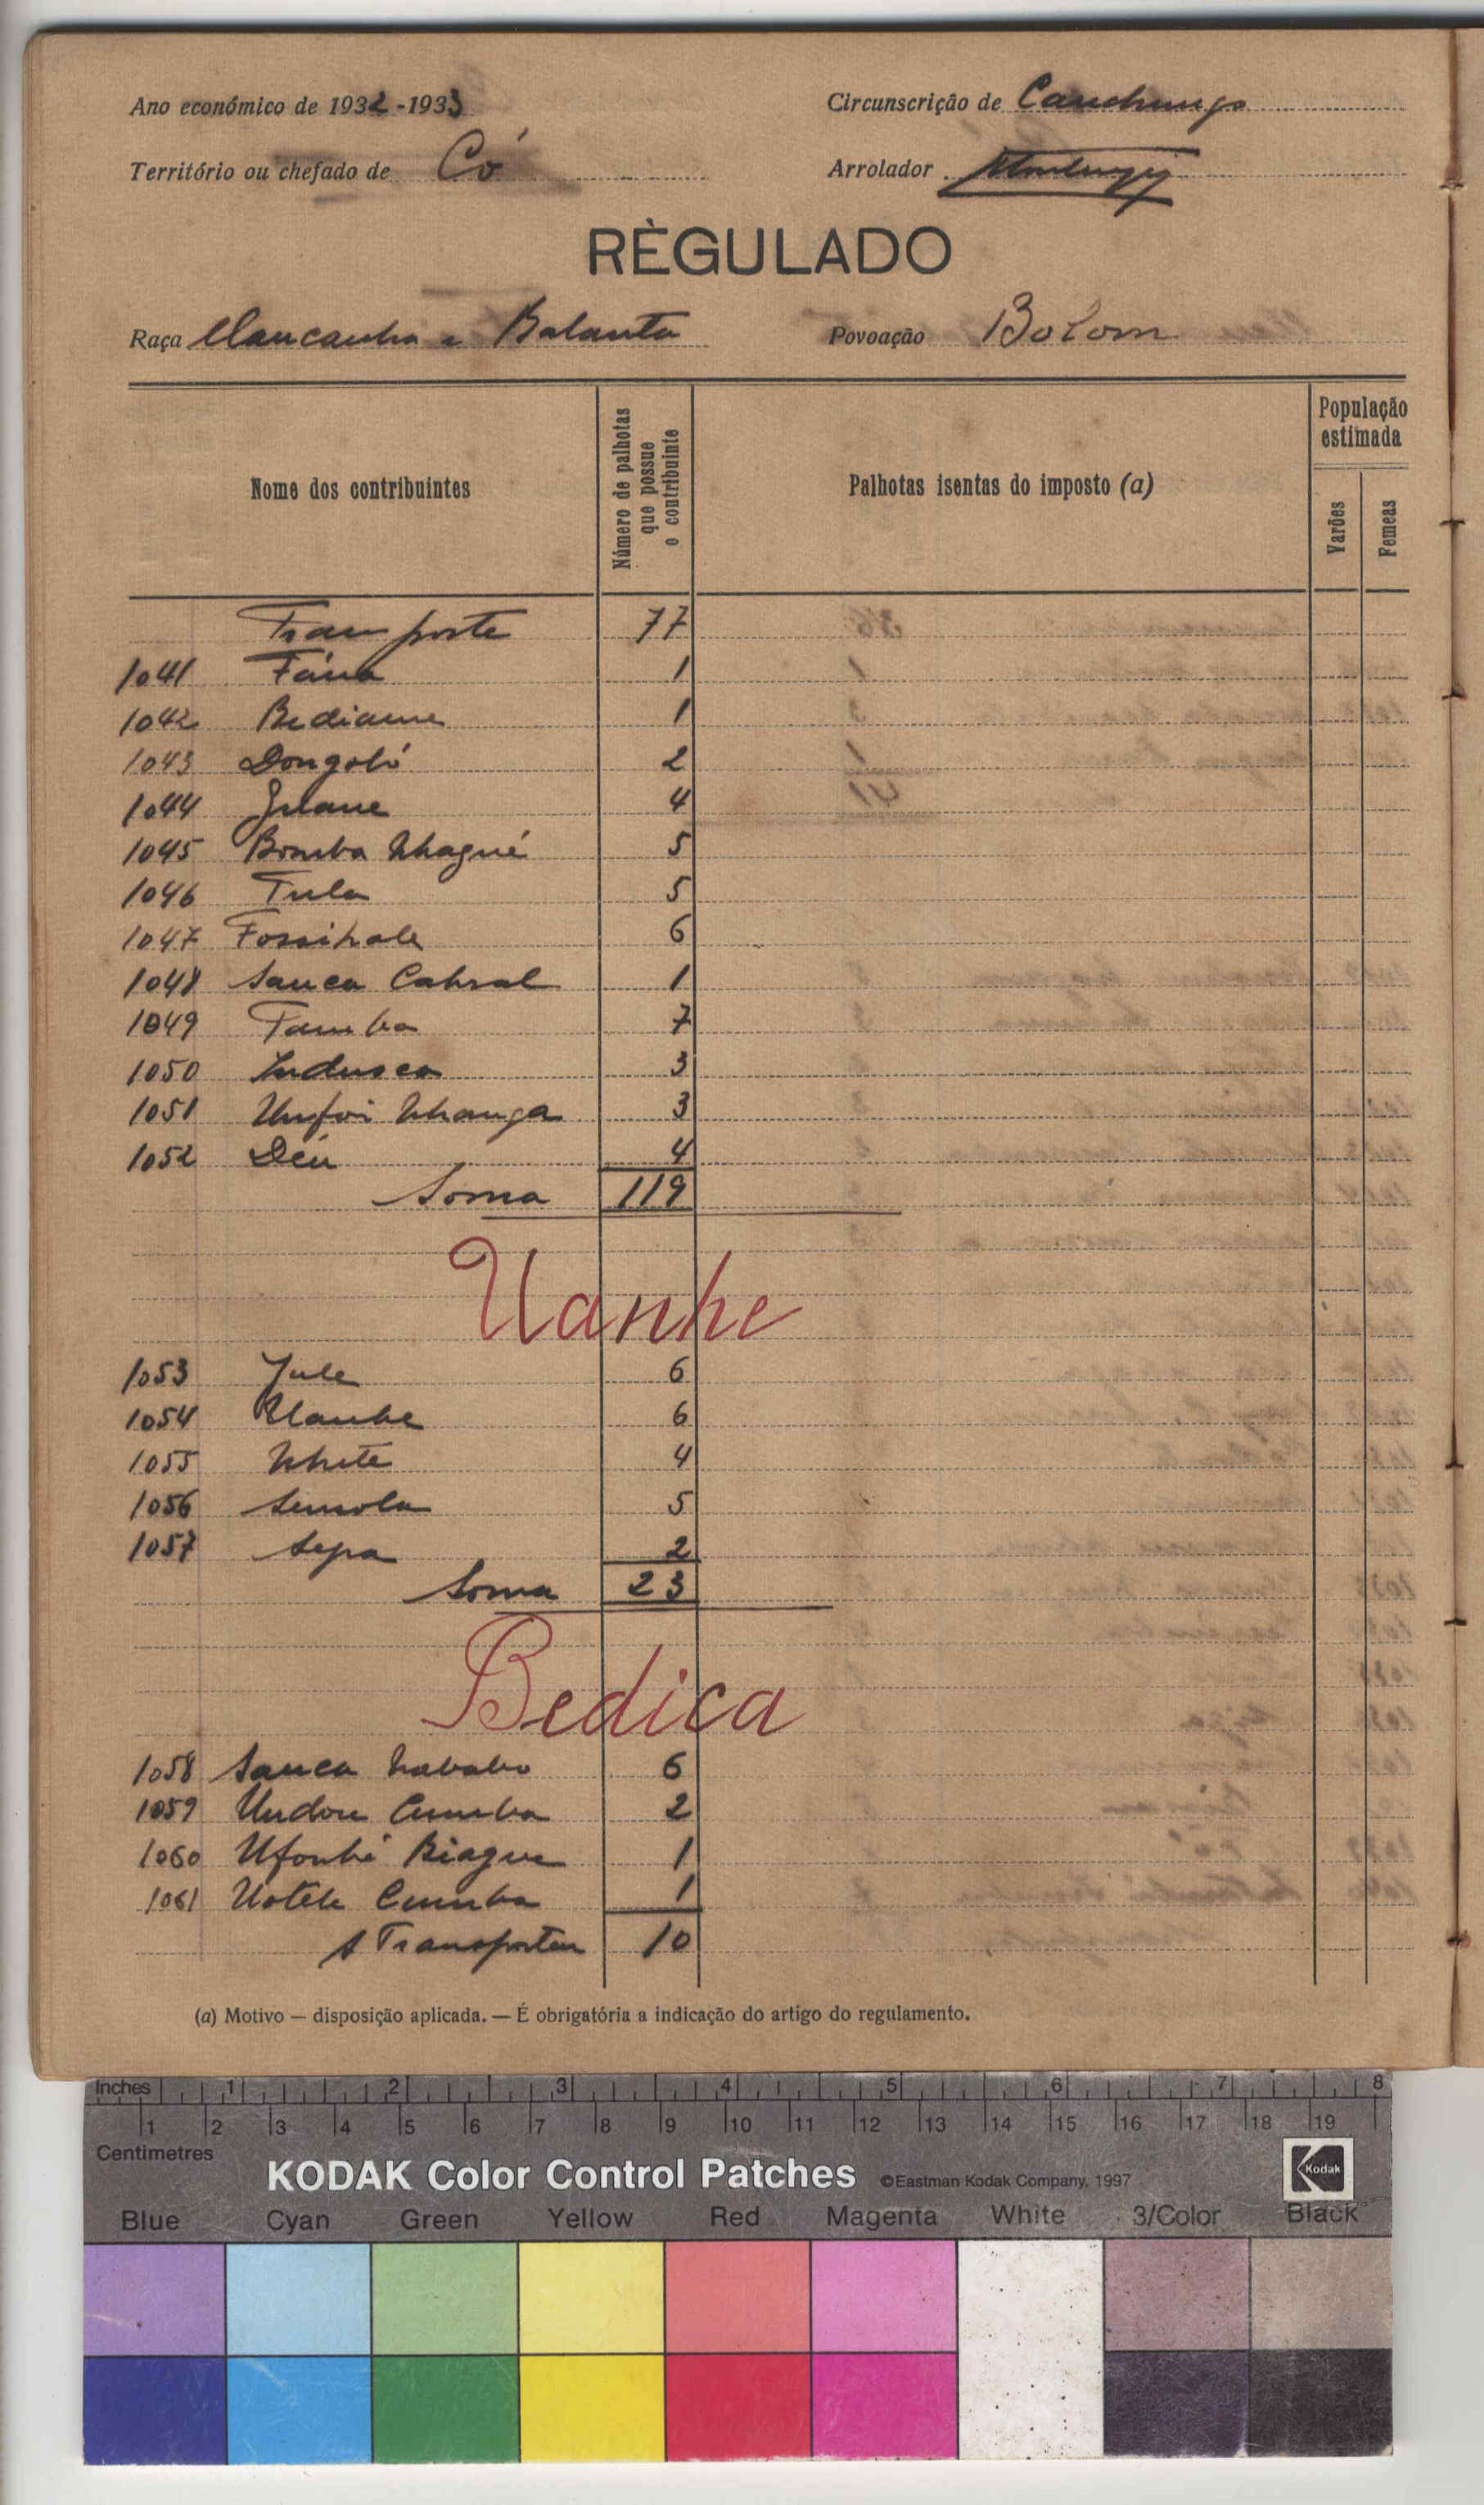 Ano económico de 1932-1933
Circunscrição de Canchungo
Território ou chefado de Có
Arrolador
RÈGULADO
Raça Mancanha e Balanta
Povoação Bolom
Nome dos contribuintes
Número de palhotas que possue o contribuinte
Palhotas isentas do imposto (a)
População estimada
Varões
Femeas
Transporte 77
1041 Fána 1
1042 Bediame 1
1043 Dongoló 2
1044 Juane 4
1045 Bomba Nhagué 5
1046 Tula 5
1047 6
1048 Sanca Cabral 1
1049 Tamba 7
1050 Indusca 3
1051 Unfoi Nhanga 3
1052 Déu 4
Soma 119
Uanhe
1053 Jule 6
1054 Uanhe 6
1055 Nhite 4
1056 Semola 5
1057 Sepa 2
Soma 23
Bedica
1058 Sanca 6
1059 Undon Cumba 2
1060 Ufonhé Biague 1
1061 Uotele Cumba 1
A Transportar 10
(a) Motivo — disposição aplicada. — É obrigatória a indicação do artigo do regulamento.
Inches 1 2 3 4 5 6 7 8
1 2 3 4 5 6 7 8 9 10 11 12 13 14 15 16 17 18 19
Centimetres
KODAK Color Control Patches ©Eastman Kodak Company, 1997 Kodak
Blue Cyan Green Yellow Red Magenta White 3/Color Black